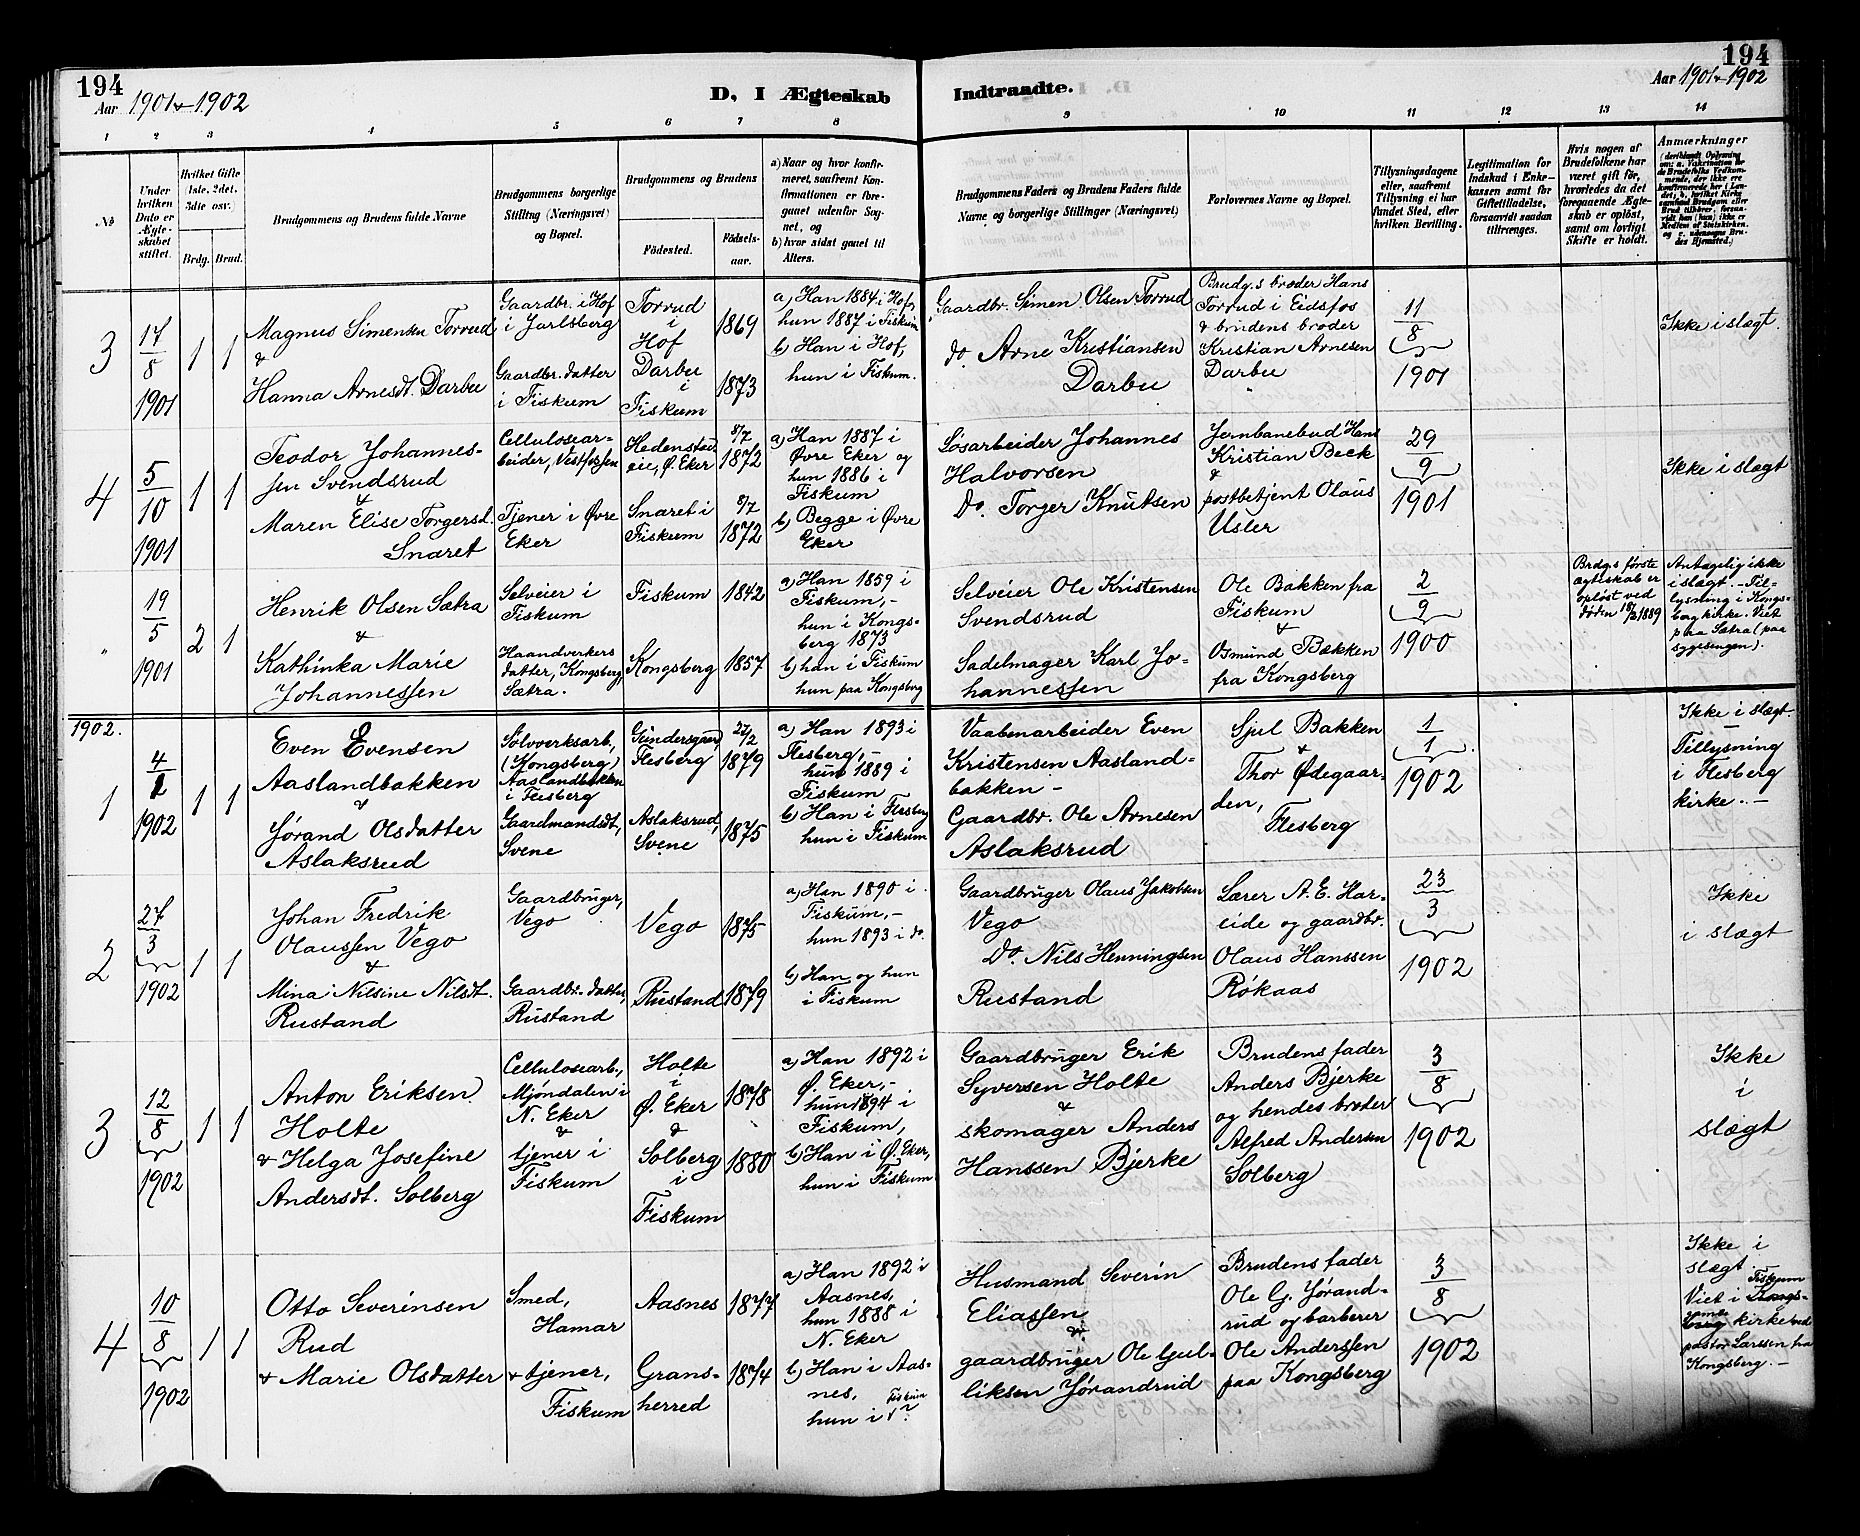 194
Aar 1901 & 1902
D, I Ægteskab
Indtraadte.
194
Aar 1901 & 1902
1 2 3 4 5 6 7 8 9 10 11 12 13 14
№
Under hvilken Dato er Ægteskabet stiftet.
Hvilket Gifte (1ste, 2det, 3die osv.)
Brdg. Brud.
Brudgommens og Brudens fulde Navne
Brudgommens borgerlige Stilling (Næringsvei) og Bopæl.
Brudgommens og Brudens
Födested.
Födsels-aar.
a) Naar og hvor konfirmeret, saafremt Konfirmationen er foregaaet udenfor Sognet, og
b) hvor sidst gaaet til Alters.
Brudgommens Faders og Brudens Faders fulde Navne og borgerlige Stillinger (Næringsvei)
Forlovernes Navne og Bopæl.
Tillysningsdagene eller, saafremt Tillysning ei har fundet Sted, efter hvilken Bevilling.
Legitimation for Indskud i Enkekassen samt for Giftetilladelse, forsaavidt saadan tiltrænges.
Hvis nogen af Brudefolkene har været gift för, hvorledes da det foregaaende Ægteskab er oplöst, samt om lovligt Skifte er holdt.
Anmærkninger
3
17/8 1901
1 1
Magnus Simensen Torrud
&
Hanna Arnesdt. Darbu
Gaardbr. i Hof
i Jarlsberg
Gaardbr. datter
i Fiskum
Torrud
i
Hof
Darbu
i
Fiskum
1869
1873
a) Han 1884 i Hof,
hun 1887 i Fiskum
b) Han i Hof,
hun i Fiskum.
Gaardbr. Simen Olsen Torrud
do Arne Kristiansen
Darbu
Brudg.s broder Hans
Torrud i Eidsfos
& brudens broder
Kristian Arnesen
Darbu
11/8
1901
Ikke i slægt.
4
5/10 1901
1 1
Teodor Johannes-
sen Svendsrud
&
Maren Elise Torgersd.
Snaret
Cellulosear-
beider, Vestfossen
Tjener i Øvre
Eker
Hedenstad-
eie, Ø. Eker
Snaret i
Fiskum
8/7
1872
8/7
1872
a) Han 1887 i
Øvre Eker og
hun 1886 i
Fiskum
b) Begge i Øvre
Eker
Løsarbeider Johannes
Halvorsen
Do. Torger Knutsen
Jernbanebud Hans
Kristian Beck
&
postbetjent Olaus
Usler
29/9
1901
Ikke i slægt
"
19/5 1901
2 1
Henrik Olsen Sætra
&
Kathinka Marie
Johannessen
Selveier i
Fiskum
Haandverkers
datter, Kongsberg,
Sætra.
Fiskum
Kongsberg
1842
1857
a) Han 1859 i
Fiskum, -
hun i Kongs-
berg 1873
b) han i Fiskum
hun paa Kongsberg
Selveier Ole Kristensen
Svendsrud
Sadelmager Karl Jo-
hannessen
Ole Bakken fra
Fiskum
&
Osmund Bækken
fra Kongsberg
2/9
1900
Brdgs første
ægteskab er
opløst ved
døden 18/2 1889
Antagelig ikke
i slægt. - Til-
lysning i Kongs-
berg kirke. Viet
paa Sætra (paa
sygesengen).
1902.
1
4/1 1902
1 1
Even Evensen
Aaslandbakken
&
Jørand Olsdatter
Aslaksrud
Sølvverksarb,
(Kongsberg)
Aaslandbakken
i Flesberg
Gaardmandsdt,
Svene
Flesberg
Aslaksrud,
Svene
27/2
1879
1875
a) Han 1893 i
Flesberg, -
hun 1889 i
Fiskum
b) Han i Flesberg
hun i Fiskum
Vaabenarbeider Even
Kristensen Aasland-
bakken -
Gaardbr. Ole Arnesen
Aslaksrud
Sjul Bakken
&
Thor Ødegaar-
den,
Flesberg
1/1
1902
Ikke i slægt.
-
Tillysning
i Flesberg
kirke. -
2
27/3
1902
1 1
Johan Fredrik
Olaussen Vego
&
Mina Nilsine Nilsdt.
Rustand
Gaardbruger,
Vego
Gaardbr. datter,
Rustand
Vego
Rustand
1875
1879
a) Han 1890 i
Fiskum, -
hun 1893 i do.
b) Han og hun
i Fiskum
Gaardbruger Olaus Jakobsen
Vego
Do. Nils Henningsen
Rustand
Lærer A. E. Har-
eide og gaardbr.
Olaus Hanssen
Røkaas
23/3
1902
Ikke
i slægt
3
12/8
1902
1 1
Anton Eriksen
Holte
& Helga Josefine
Andersdt. Solberg
Cellulosearb.,
Mjøndalen i
N. Eker
&
tjener i
Fiskum
Holte
i
Ø. Eker
&
Solberg
i
Fiskum
1878
1880
a) Han 1892 i
Ø. Eker, -
hun 1894 i
Fiskum,
b) Han i Ø. Eker,
hun i Fiskum
Gaardbruger Erik
Syversen Holte
&
skomager Anders
Hanssen Bjerke
Brudens fader
Anders Bjerke
og hendes broder
Alfred Andersen
Solberg
3/8
1902
Ikke
i
slægt
4
10/8
1902
1 1
Otto Severinsen
Rud
& Marie Olsdatter
Smed,
Hamar
& tjener,
Fiskum
Aasnes
Grans-
herred
1877
1874
a) Han 1892 i
Aasnes,
hun 1888 i
N. Eker
b) Han i Aas-
nes,
hun i Fiskum?
Husmand Severin
Eliassen
&
gaardbruger Ole Gul-
liksen Jørandrud
Brudens fader
Ole G. Jørand-
rud og barberer
Ole Anderssen
paa Kongsberg
3/8
1902
Ikke i
slægt -
Viet i Fiskum
kirke ved
pastor Larssen fra
Kongsberg. -